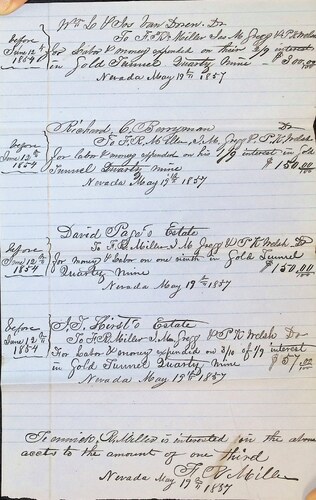 Wm L & Abs Van Doren Dr
To F. R. Miller Jas M. Gregg & P. K. Welsh
before June 12th 1854
for Labor & money expended on their 2/9 interest
in Gold Tunnel Quartz Mine $300.00
Nevada May 19th 1857
Richard C. Berryman Dr
To F. R. Miller J. M. Gregg & P. K. Welsh
before June 12th 1854
for labor & money expended on his 1/9 interest in Gold
Tunnel Quartz mine $150.00
Nevada May 19th 1857
David Page's Estate
To F. R. Miller J M Gregg & P K Welsh Dr
before June 12th 1854
for money & labor on one ninth in Gold Tunnel
Quartz mine $150.00
Nevada May 19th 1857
Hirst's Estate
To F. R. Miller J. M. Gregg & P K Welsh Dr
before June 12th 1854
For Labor & money expended on 3/10 of 1/9 interest
in Gold Tunnel Quartz Mine $57
Nevada May 19th 1857
R. Miller is interested in the above
accts to the amount of one third
F R Miller
Nevada May 19th 1857